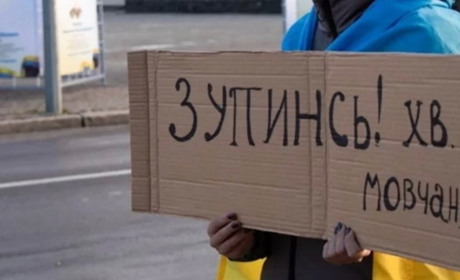 ЗУПИНСЬ! ХВ.
МОВЧАН